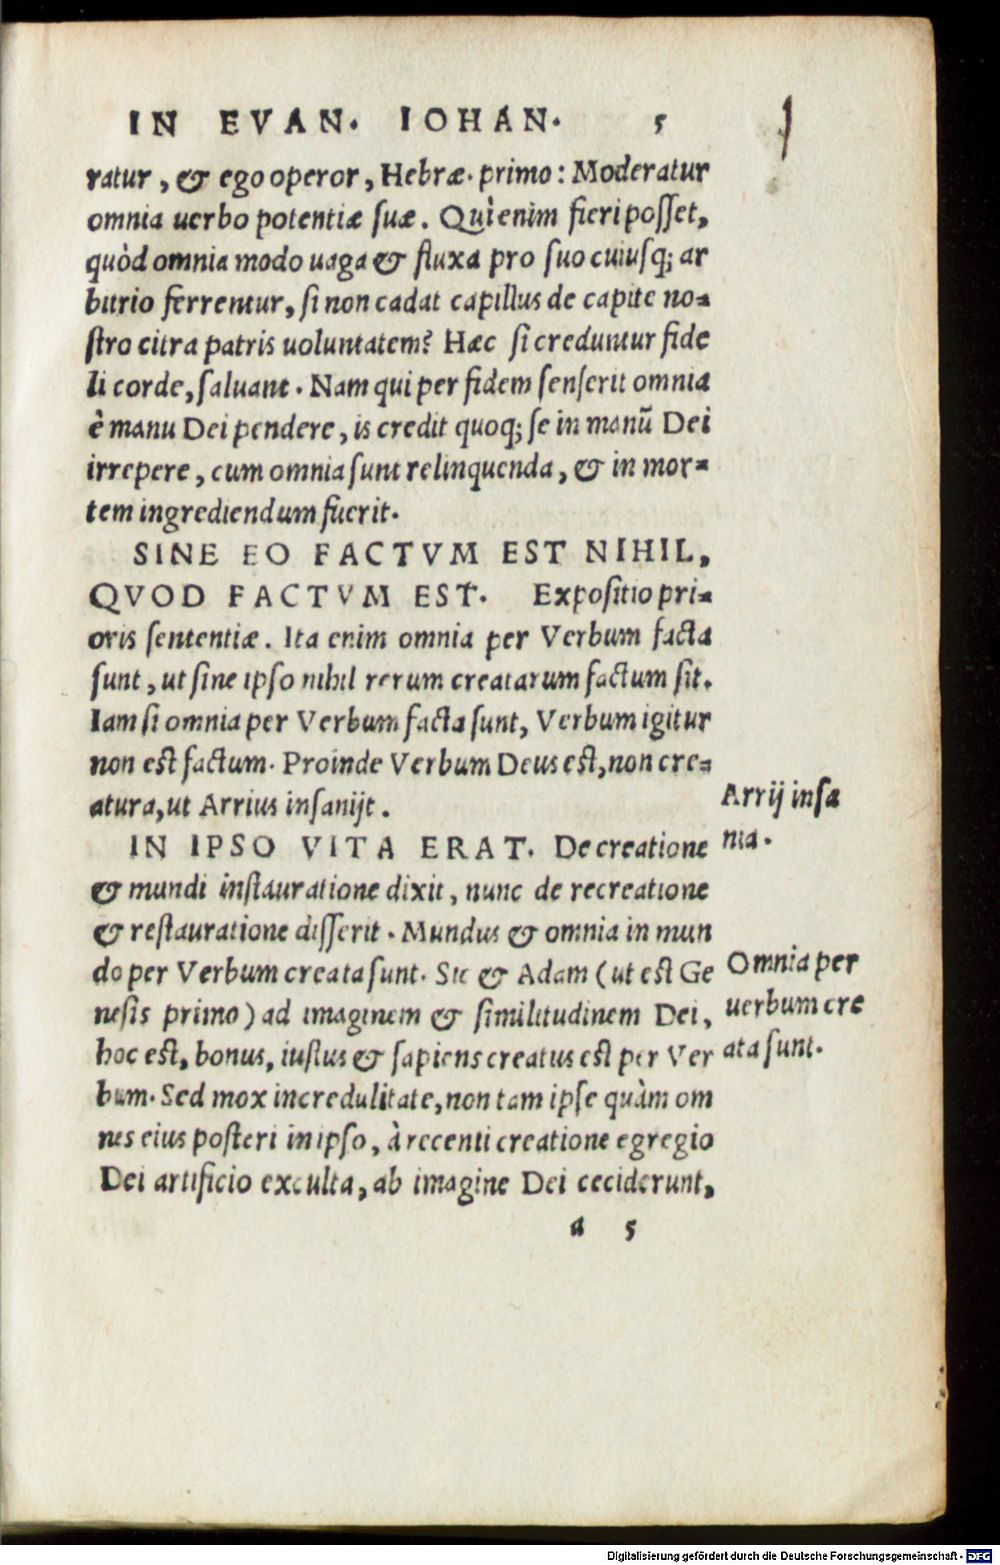 IN EVAN. IOHAN. 5
ratur, & ego operor, Hebræ. primo: Moderatur
omnia uerbo potentiæ suæ. Quì enim fieri posset,
quòd omnia modo uaga & fluxa pro suo cuiusq; ar
bitrio ferrentur, si non cadat capillus de capite no-
stro citra patris uoluntatem? Hæc si creduntur fide
li corde, saluant. Nam qui per fidem senserit omnia
è manu Dei pendere, is credit quoq; se in manũ Dei
irrepere, cum omnia sunt relinquenda, & in mor-
tem ingrediendum fuerit.
SINE EO FACTVM EST NIHIL,
QVOD FACTVM EST. Expositio pri-
oris sententiæ. Ita enim omnia per Verbum facta
sunt, ut sine ipso nihil rerum creatarum factum sit.
Iam si omnia per Verbum facta sunt, Verbum igitur
non est factum. Proinde Verbum Deus est, non cre-
atura, ut Arrius insanijt.
Arrij insa
nia.
IN IPSO VITA ERAT. De creatione
& mundi instauratione dixit, nunc de recreatione
& restauratione disserit. Mundus & omnia in mun
do per Verbum creata sunt. Sic & Adam (ut est Ge
nesis primo) ad imaginem & similitudinem Dei,
hoc est, bonus, iustus & sapiens creatus est per Ver
bum. Sed mox incredulitate, non tam ipse quàm om
nes eius posteri in ipso, à recenti creatione egregio
Dei artificio exculta, ab imagine Dei ceciderunt,
Omnia per
uerbum cre
ata sunt.
a 5
Digitalisierung gefördert durch die Deutsche Forschungsgemeinschaft - DFG